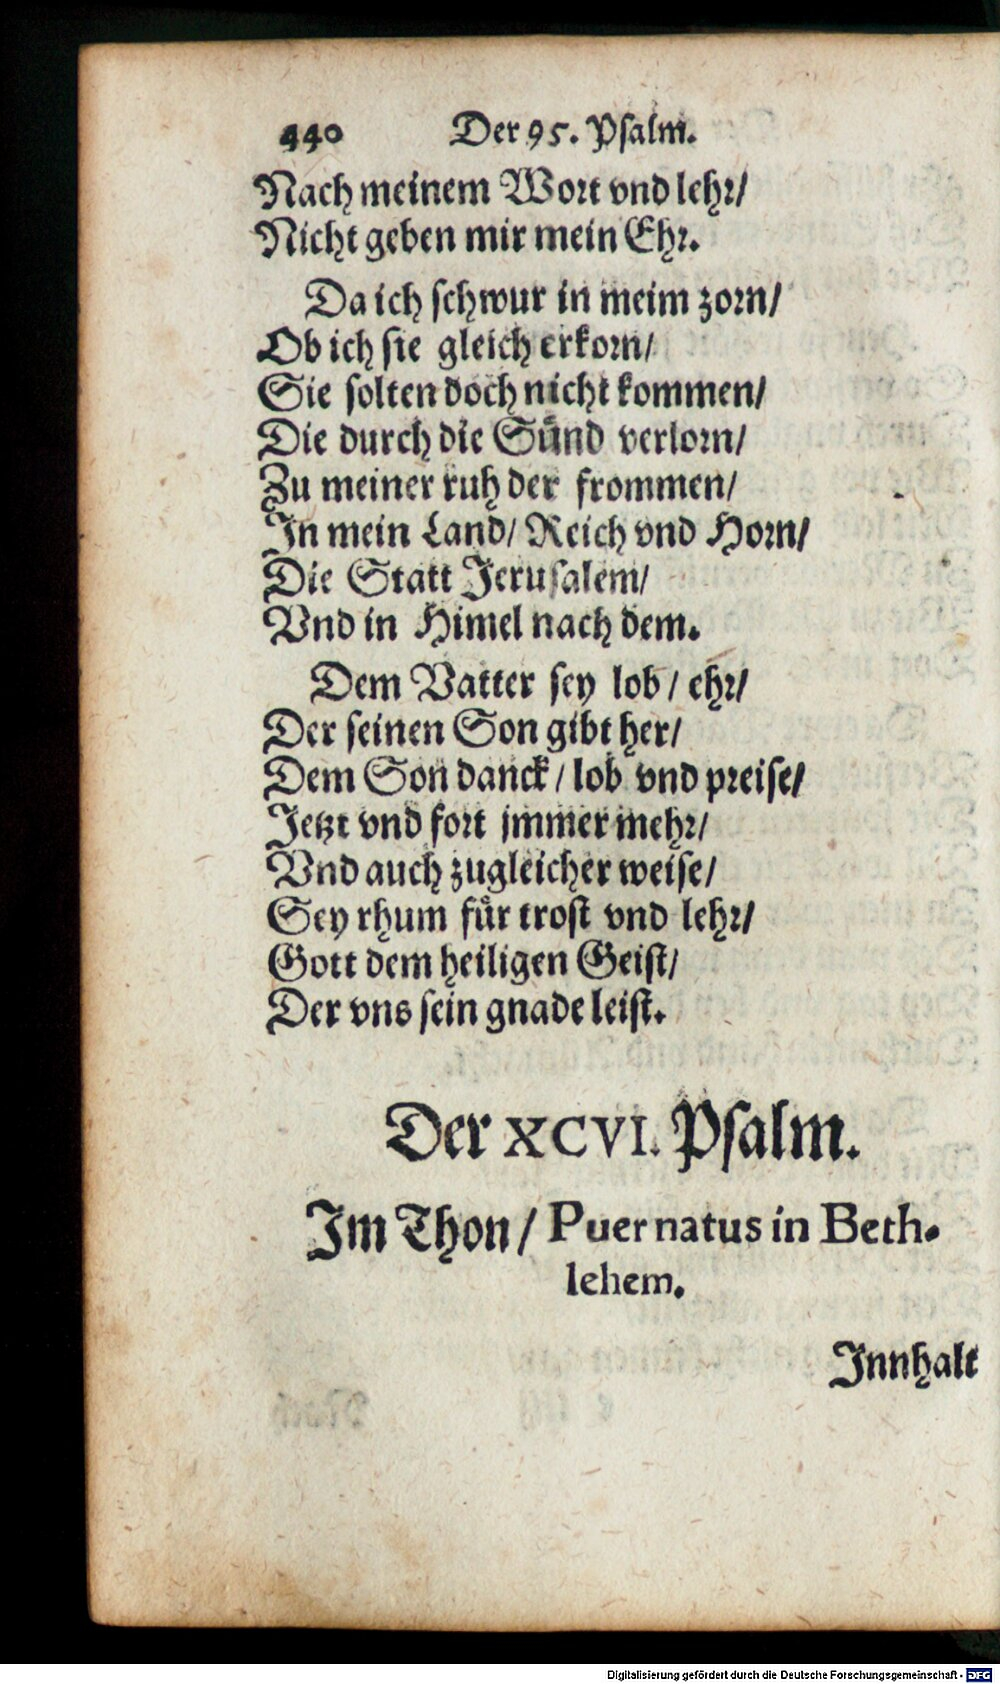 440 Der 95. Psalm.
Nach meinem Wort vnd lehr/
Nicht geben mir mein Ehr.
Da ich schwur in meim zorn/
Ob ich sie gleich erkorn/
Sie solten doch nicht kommen/
Die durch die Sünd verlorn/
Zu meiner ruh der frommen/
In mein Land/ Reich vnd Horn/
Die Statt Jerusalem/
Vnd in Himel nach dem.
Dem Vatter sey lob/ ehr/
Der seinen Son gibt her/
Dem Son danck/ lob vnd preise/
Jetzt vnd fort jmmer mehr/
Vnd auch zugleicher weise/
Sey rhum für trost vnd lehr/
Gott dem heiligen Geist/
Der vns sein gnade leist.
Der XCVI. Psalm.
Im Thon/ Puer natus in Beth-
lehem.
Innhalt
Digitalisierung gefördert durch die Deutsche Forschungsgemeinschaft - DFG